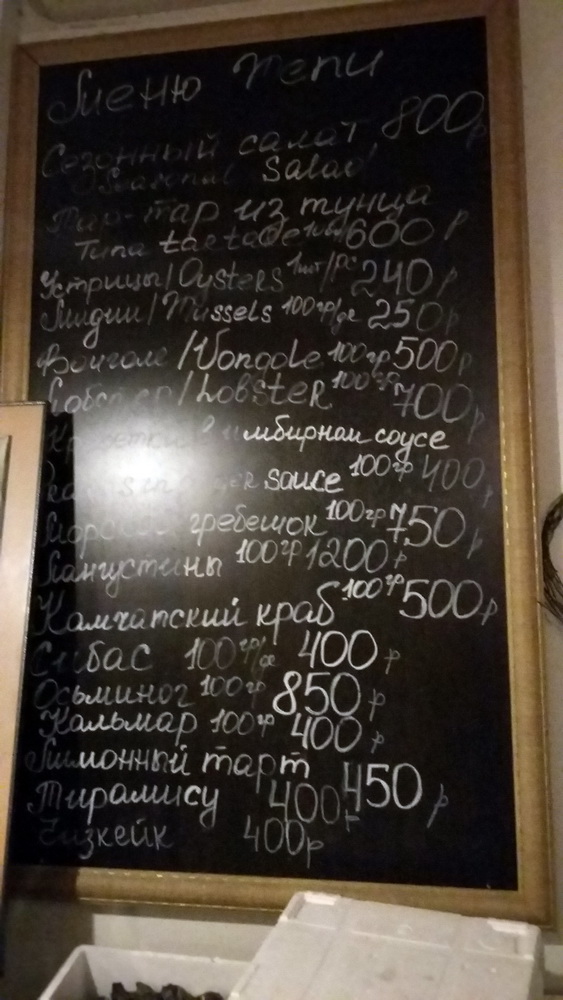 Меню Menu
Сезонный салат 800р
Seasonal Salad
Тар-тар из тунца
Tuna tartare 600 р
Устрицы/Oysters 1шт/pc 240 р
Мидии/Mussels 100гр/gr 250 р
Вонголе/Vongole 100гр 500р
Лобстер/Lobster 100гр 700р
Креветки в имбирном соусе
sauce 100гр 400р
Морской гребешок 100гр 750р
Лангустины 100гр 1200р
Камчатский краб 100гр 500р
Сибас 100гр/gr 400 р
Осьминог 100гр 850 р
Кальмар 100гр 400 р
Лимонный тарт 450 р
Тирамису 400р
Чизкейк 400р